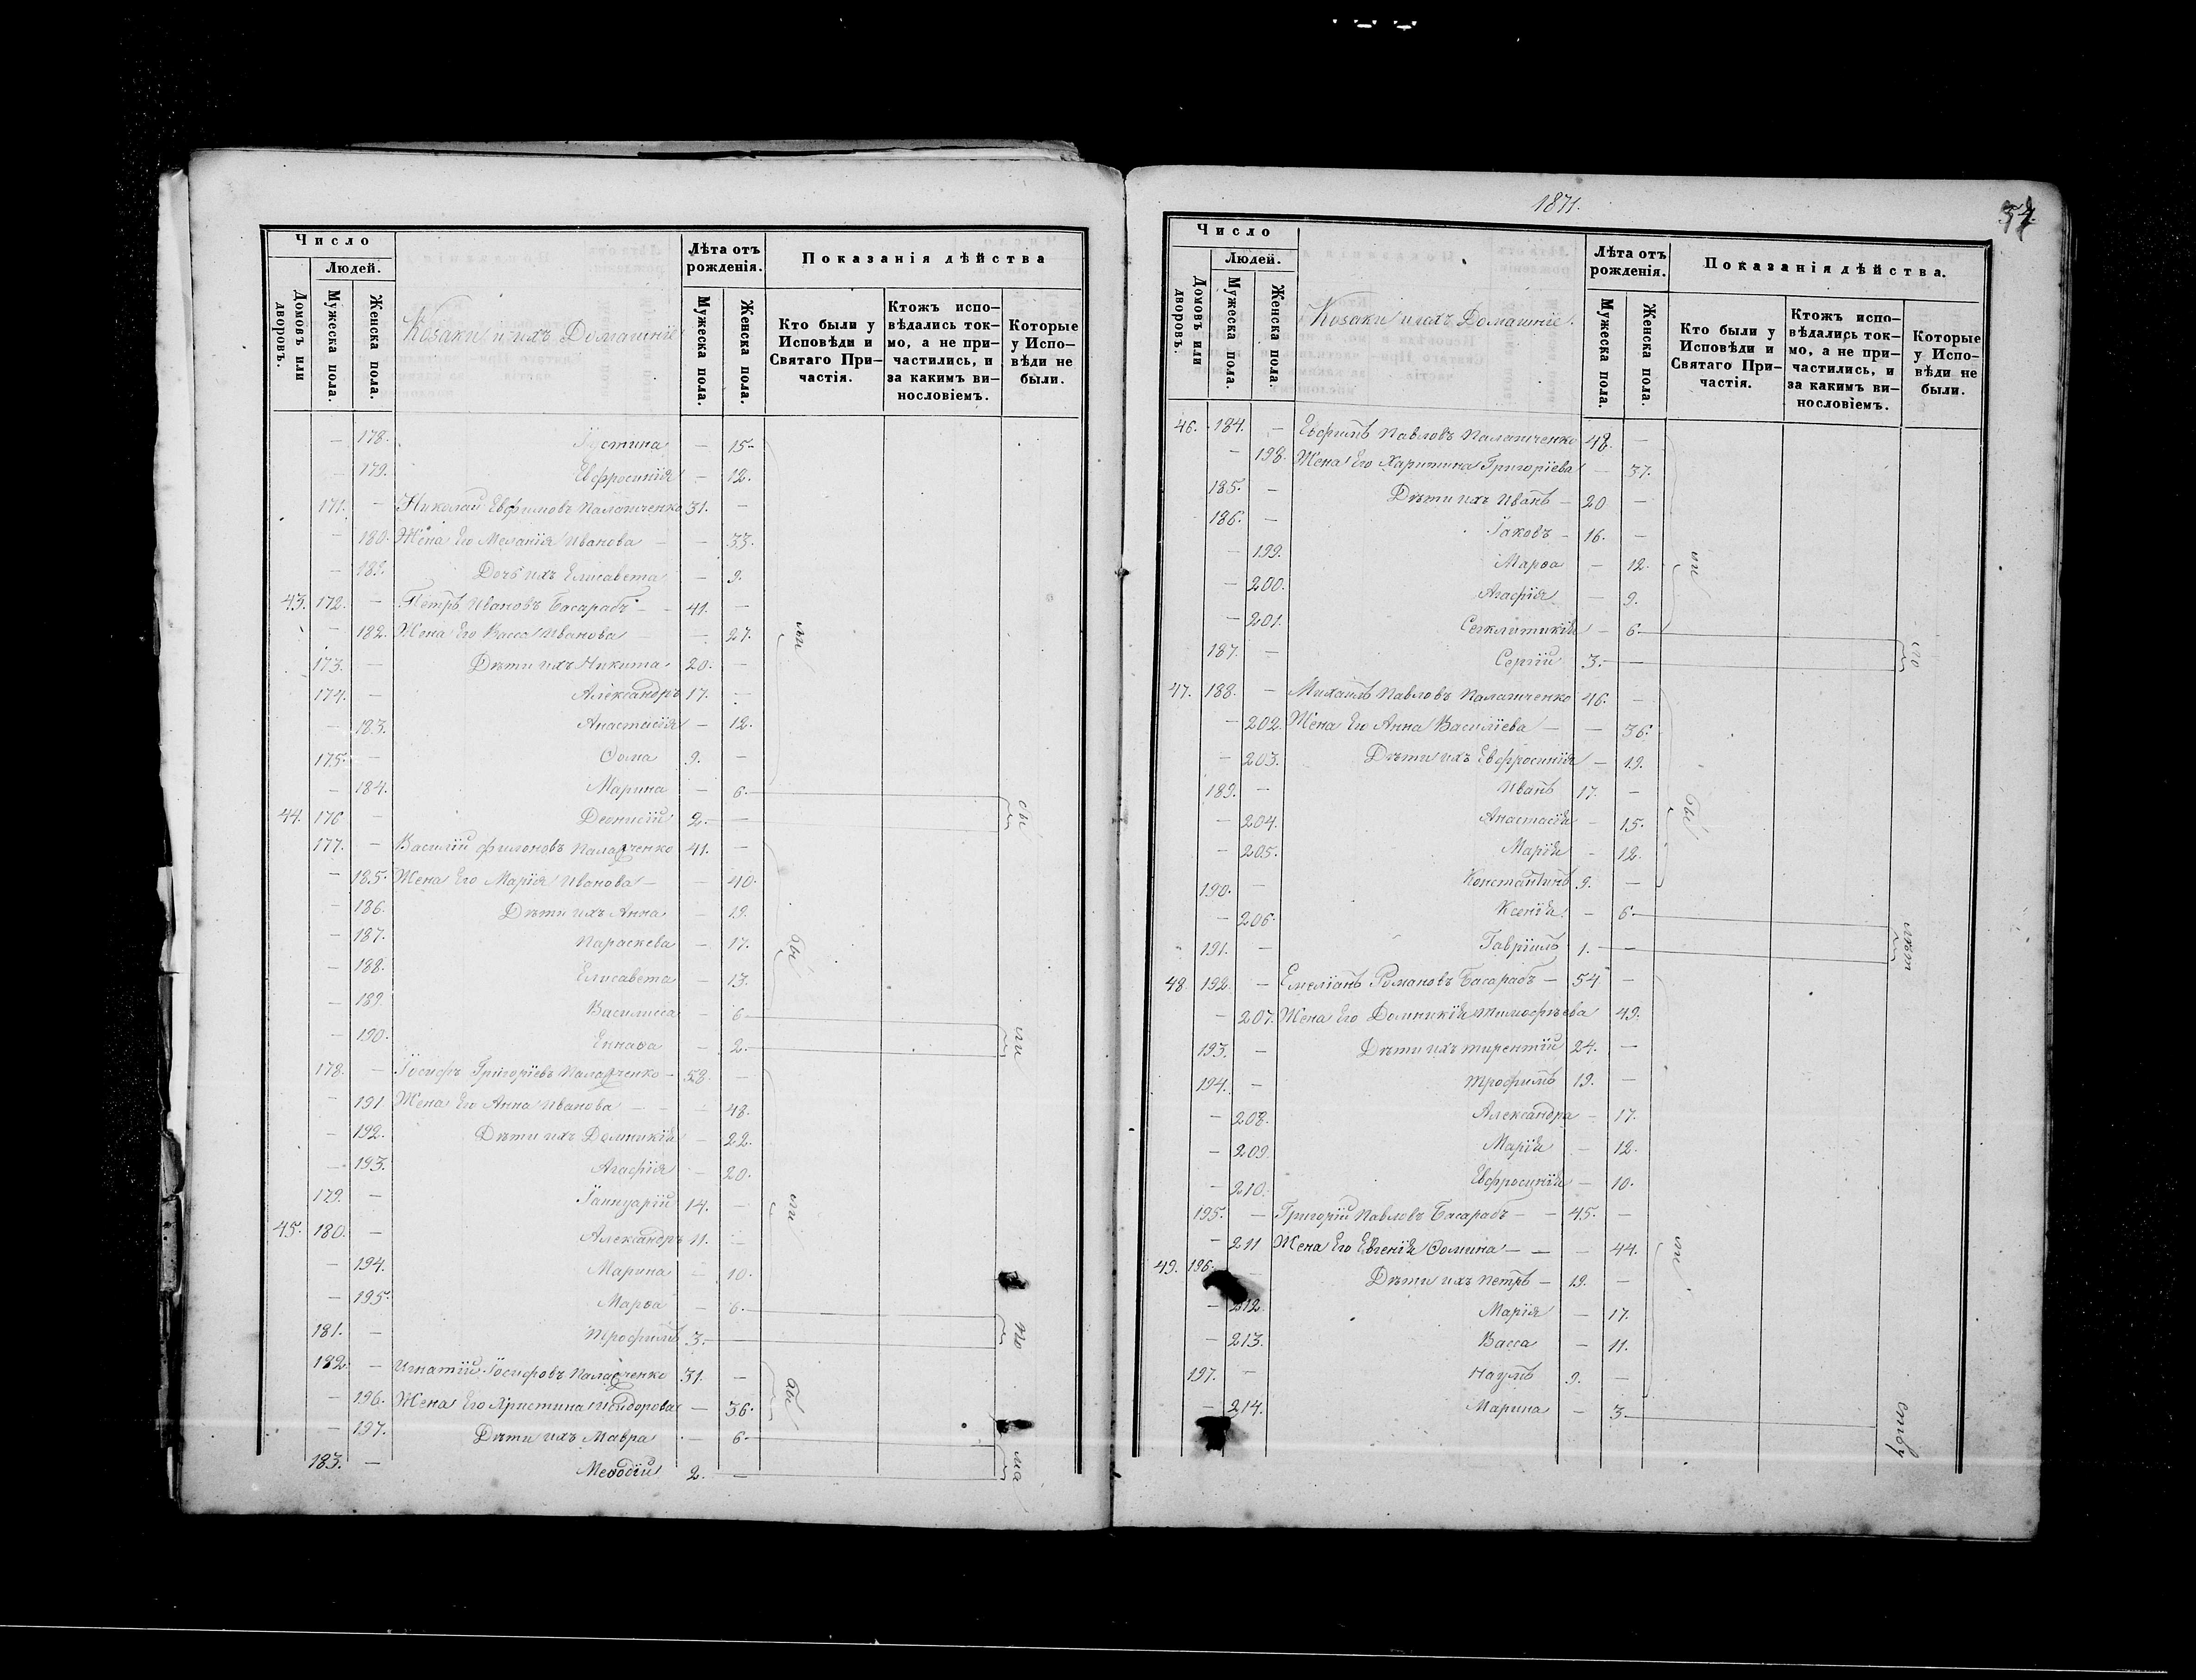 Число
Людей.
Домовъ или дворовъ.
Мужеска пола.
Женска пола.
Козаки и ихъ Домашніе
Лѣта отъ рожденія.
Мужеска пола.
Женска пола.
Показанія дѣйства
Кто были у Исповѣди и Святаго Причастія.
Ктожъ исповѣдались токмо, а не причастились, и за какимъ винословіемъ.
Которые у Исповѣди не были.
— 178. Іустина — 15.
— 179. Евфросинія — 12.
171. — Николай Евфимовъ Палатченко 31. —
— 180. Жена Его Меланія Иванова — — 33.
— 181. Дочь ихъ Елисавета — 9.
43. 172. — Петръ Ивановъ Басарабъ — 41. —
— 182. Жена Его Васса Иванова — — 27.
173. — Дѣти ихъ Никита 20. —
174. — Александръ 17. —
— 183. Анастасія — 12.
175. — Ѳома 9. —
— 184. Марина — 6.
44. 176 — Деонисій 2. —
177. — Василій Филоновъ 41. —
— 185. Жена Его Марія Иванова — — 40.
— 186. Дѣти ихъ Анна — 19.
— 187. Параскева — 17.
— 188. Елисавета — 13.
— 189. Василисса — 6.
— 190. — 2.
178. — Іосифъ Григоріевъ — 58. —
— 191 Жена Его Анна Иванова — — — 48.
— 192. Дѣти ихъ Домникія — 22.
— 193. Агафія — 20.
179. — Іаннуарій 14. —
45. 180. — Александръ 11. —
— 194. Марина — 10.
— 195. Марѳа — 6.
181. — Трофимъ 3. —
182. — Игнатій Іосифовъ 31. —
— 196. Жена Его Христина Исидорова — 36.
— 197. Дѣти ихъ Мавра — 6.
183. — Меѳодій 2. —
ли
бы
ли
бы
бы
ли
по
ма
1871.
54.
Число
Людей.
Домовъ или дворовъ.
Мужеска пола.
Женска пола.
Козаки и ихъ Домашніе.
Лѣта отъ рожденія.
Мужеска пола.
Женска пола.
Показанія дѣйства.
Кто были у Исповѣди и Святаго Причастія.
Ктожъ исповѣдались токмо, а не причастились, и за какимъ винословіемъ.
Которые у Исповѣди не были.
46. 184. — Евфимъ Павловъ Палатченко 48. —
— 198. Жена Его Харитина Григоріева — 37.
185. — Дѣти ихъ Иванъ — 20 —
186. — Іаковъ — 16. —
— 199. Марѳа — 12.
— 200. Агафія — 9.
— 201. — 6.
187. — Сергій 3. —
47. 188. — Михаилъ Павловъ Палатченко 46. —
— 202. Жена Его Анна Василіева — — 36.
— 203. Дѣти ихъ Евфросинія — 19.
189. — Иванъ 17. —
— 204. Анастасія — 15.
— 205. Марія — 12.
190. — Константинъ 9. —
— 206. Ксенія — 6.
191. — Гавріилъ 1. —
48. 192. — Емеліанъ Романовъ Басарабъ — 54 —
— 207. Жена Его Домникія Тимофѣева 49.
193. — Дѣти ихъ Тирентій 24. —
194. — Трофимъ 19. —
— 208. Александра — 17.
— 209. Марія — 12.
— 210. Евфросинія — 10.
195. — Григорій Павловъ Басарабъ — — 45. —
— 211 Жена Его Евгенія Ѳомина — — — 44.
49. 196. — Дѣти ихъ Петръ — 19. —
— 212. Марія — 17.
— 213. Васса — 11.
197. — Наумъ 9. —
— 214. Марина — 3.
ли
бы
ли
лѣт
ству